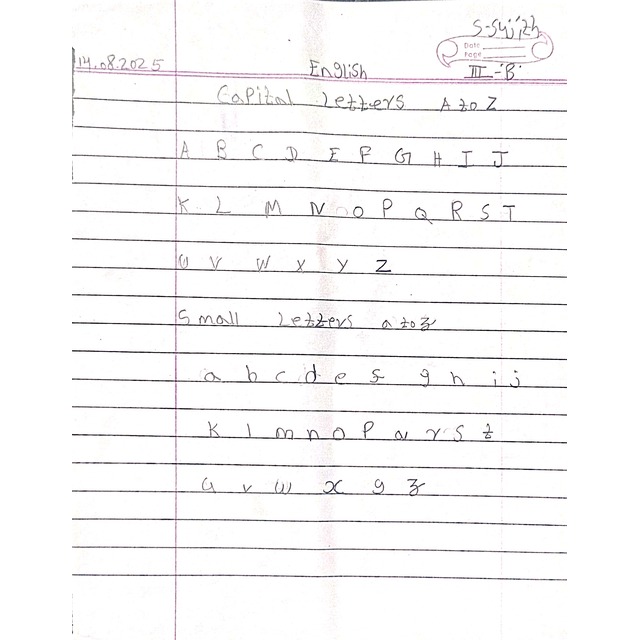 S-Sujith
Date
Page
14.08.2025 English III-'B'
Capital Letters A to Z
A B C D E F G H I J
K L M N O P Q R S T
U V W X Y Z
Small Letters a to z
a b c d e f g h i j
k l m n o p q r s t
u v w x y z